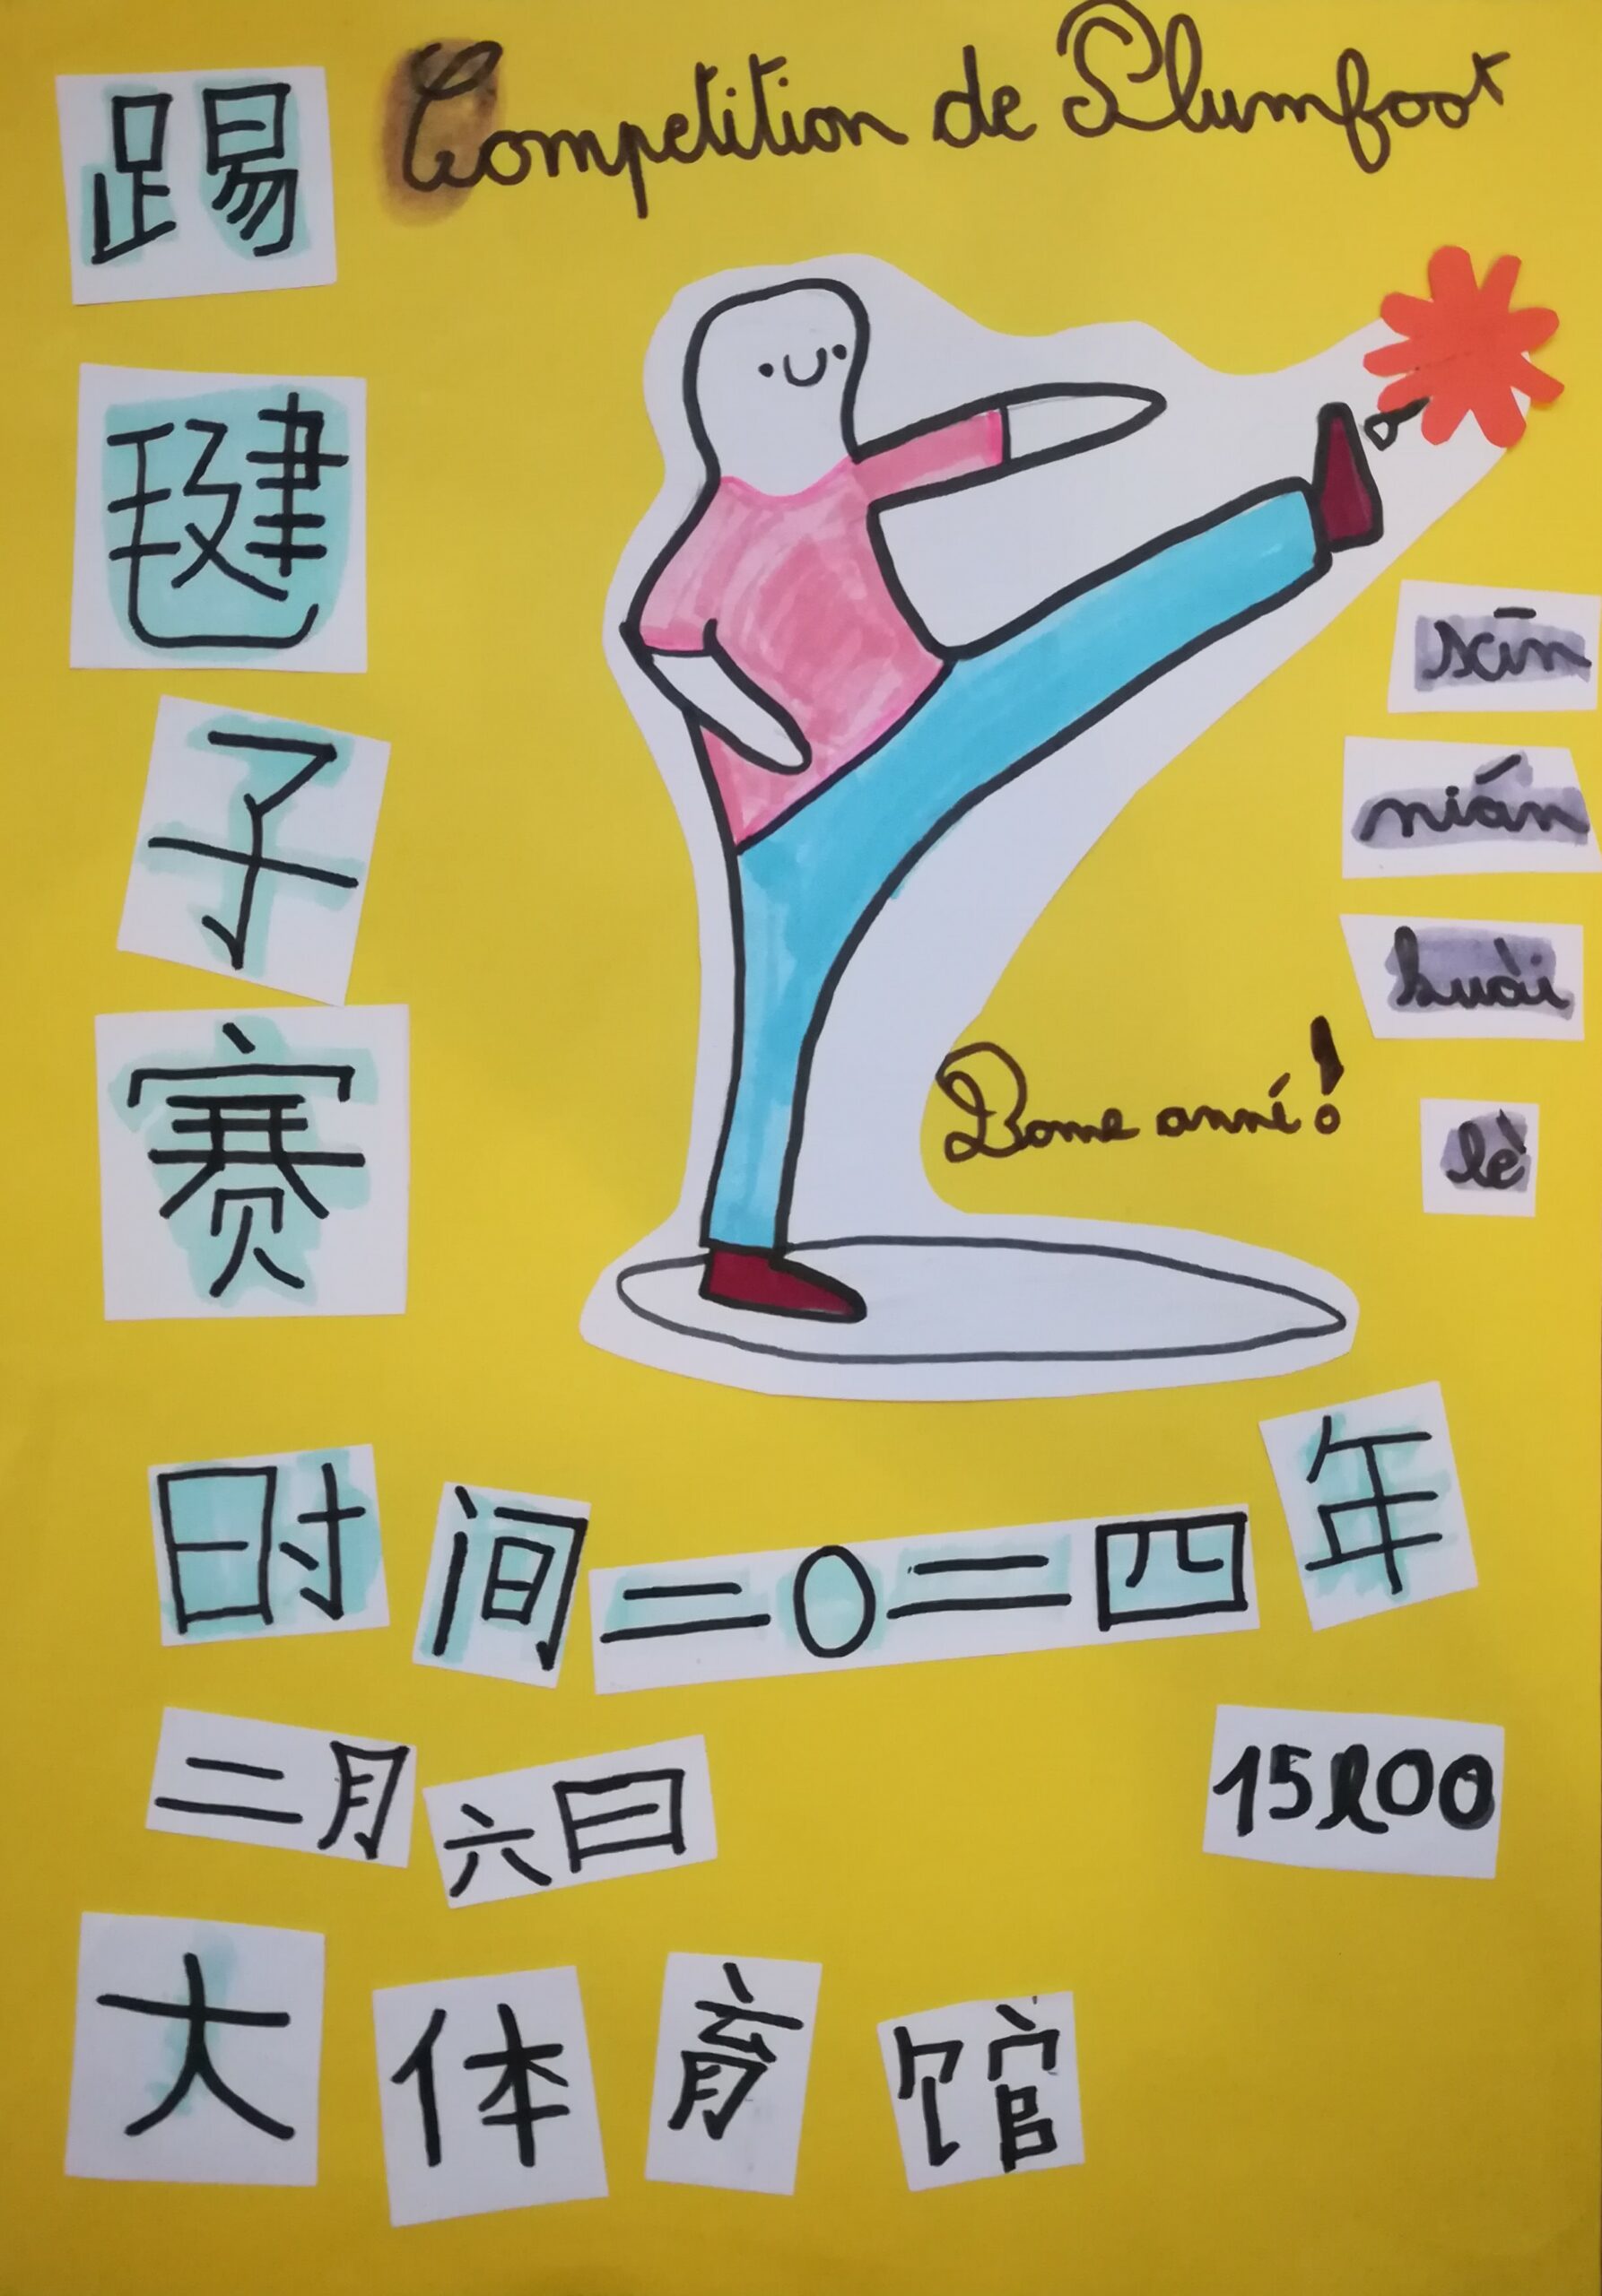 Competition de Plumfoot
踢
毽
子
赛
xīn
nián
kuài
lè
Bonne anné!
时间二〇二四年
二月六日
15h00
大体育馆